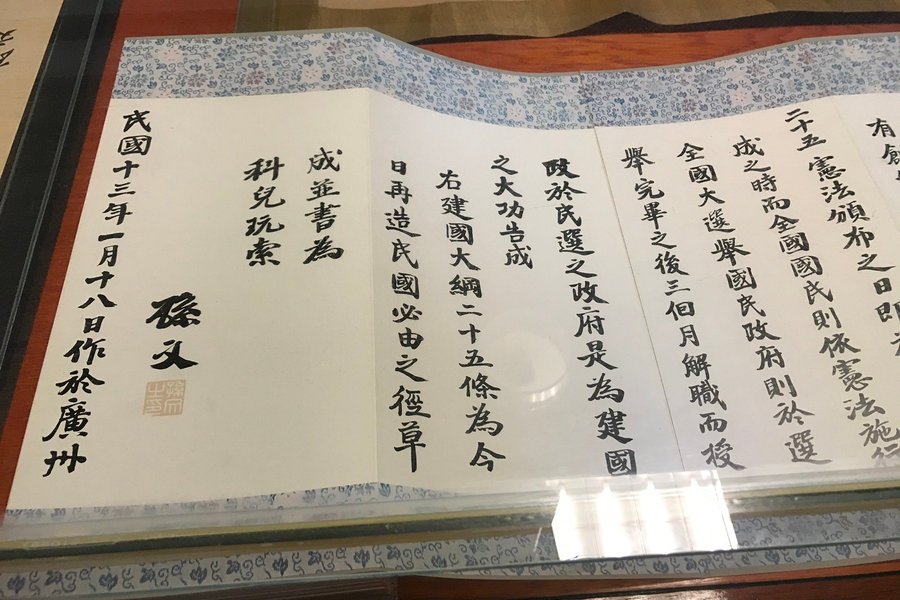 有創
二十五 憲法頒布之日即
成之時而全國國民則依憲法施行
全國大選舉國民政府則於選
舉完畢之後三個月解職而授
政於民選之政府是為建國
之大功告成
右建國大綱二十五條為今
日再造民國必由之徑草
成並書為
科兒玩索
孫文
孫文之印
民國十三年一月十八日作於廣州